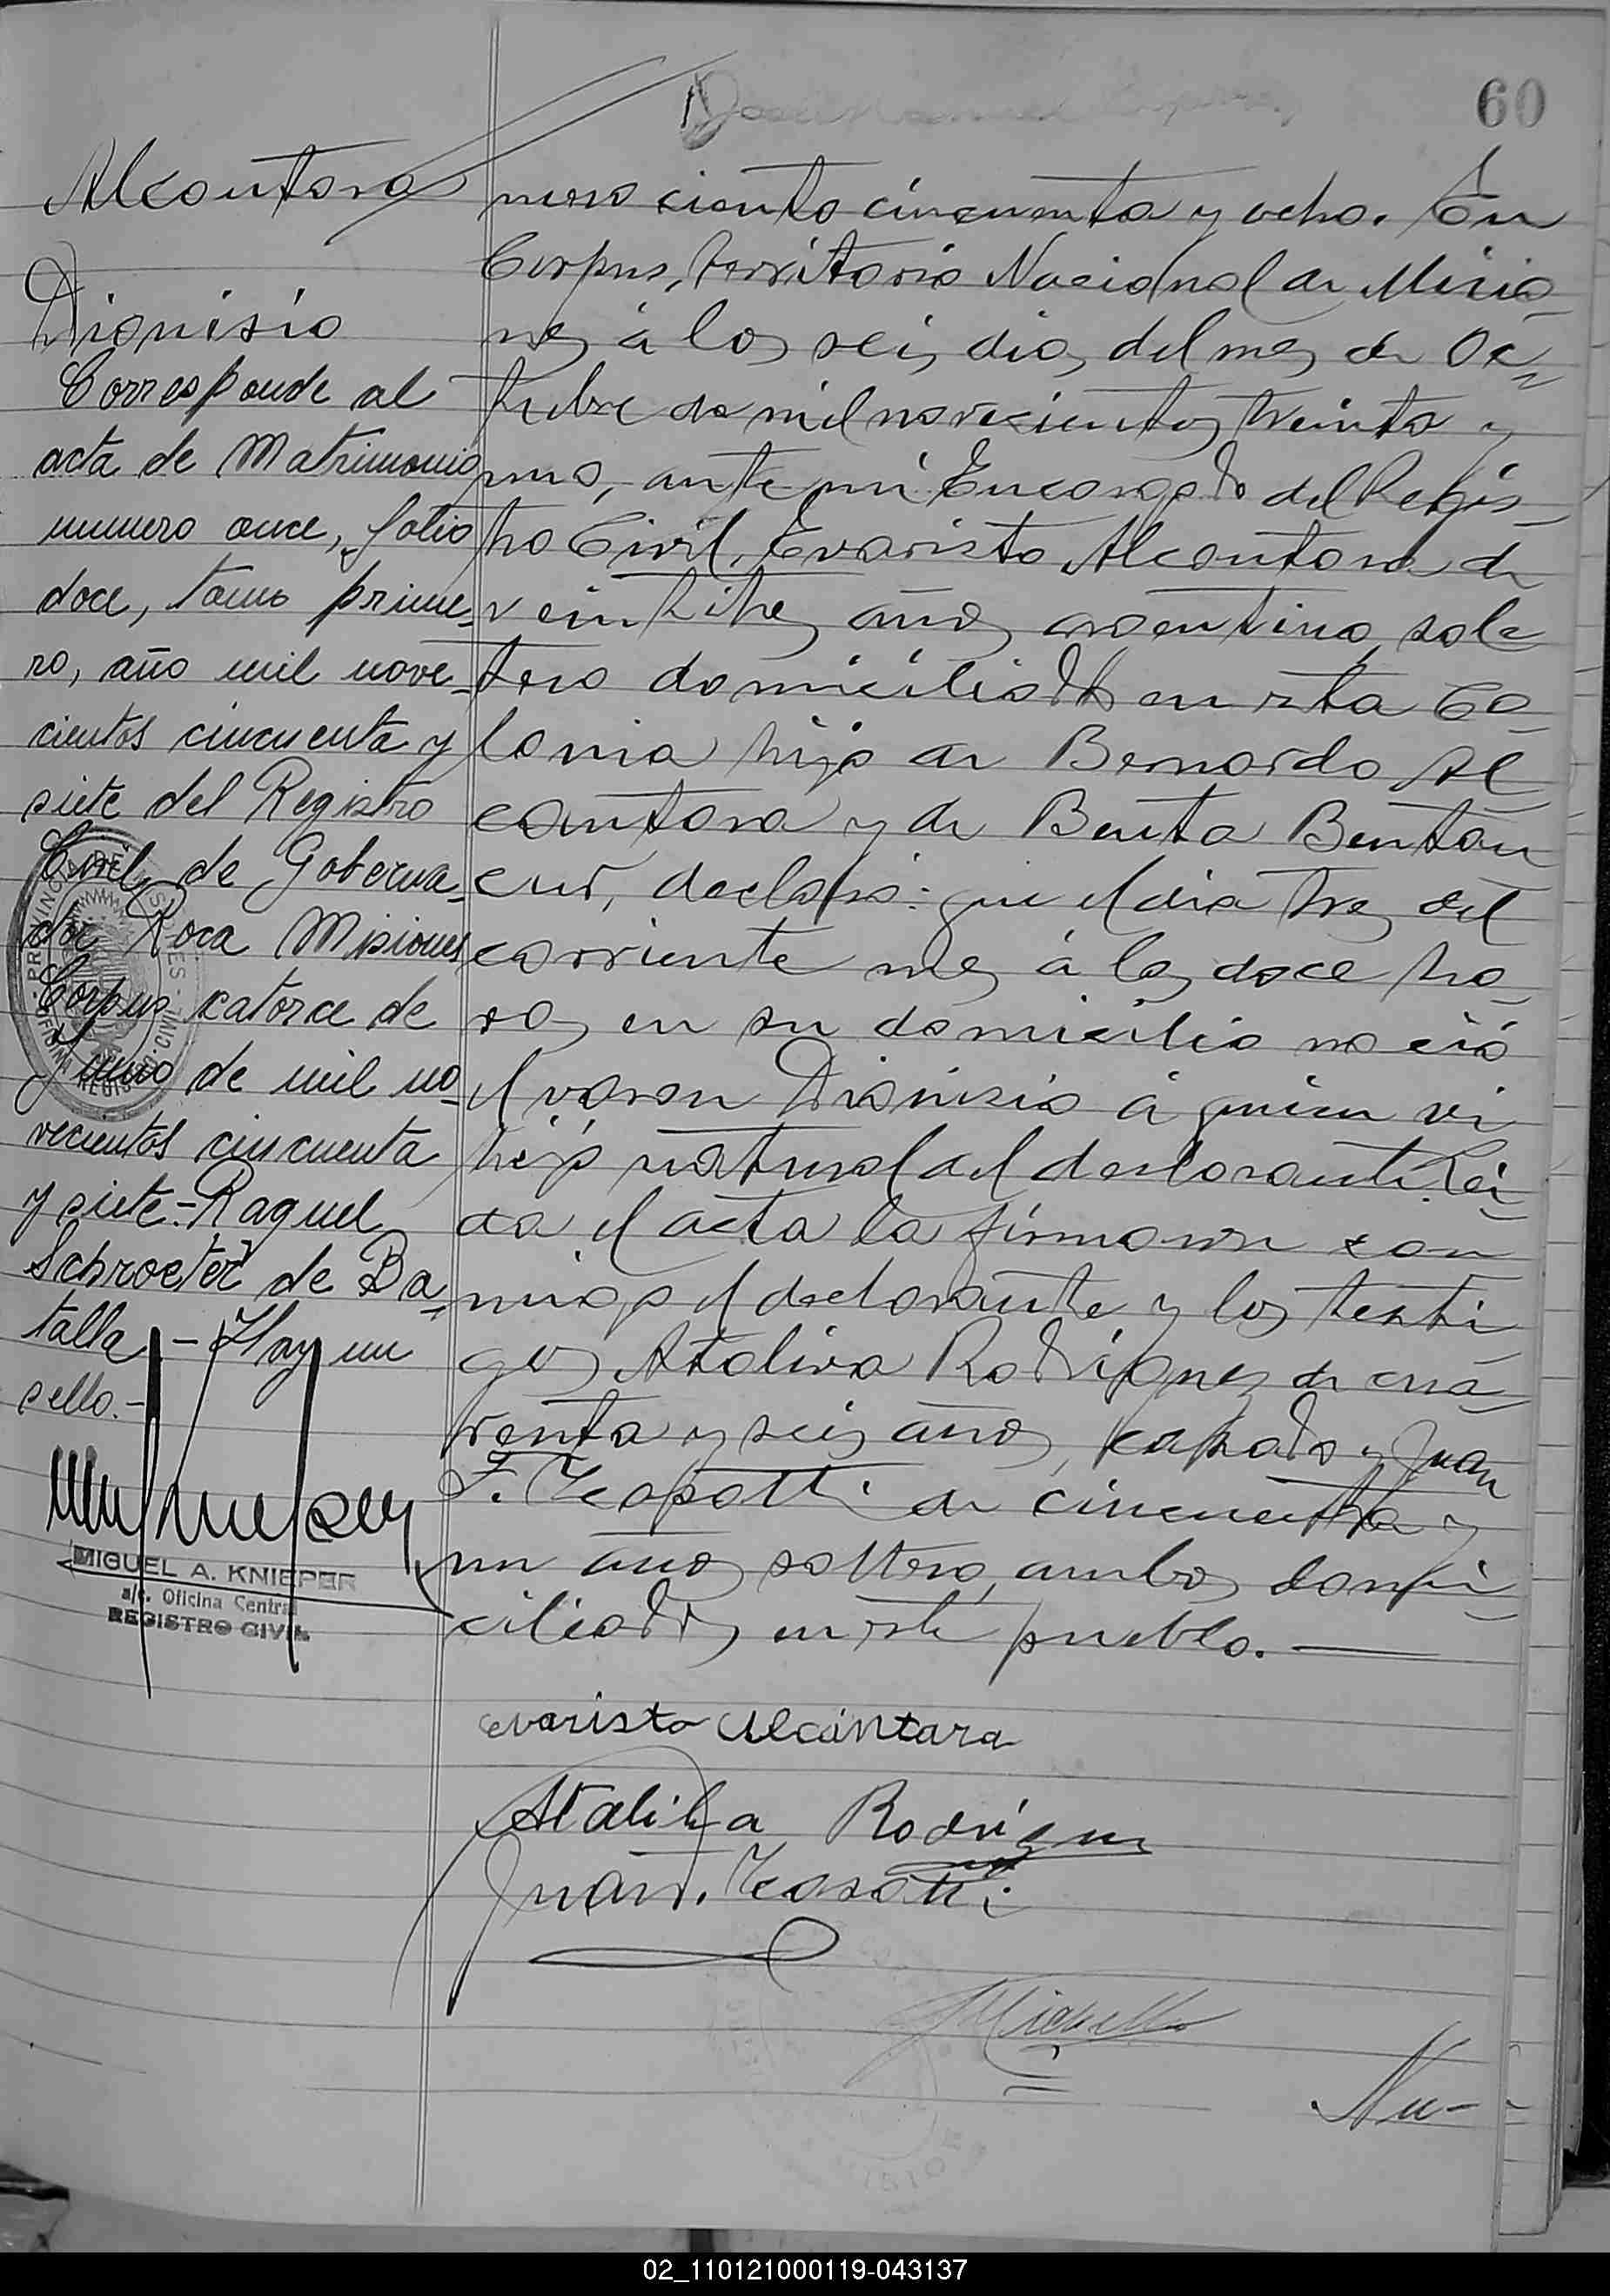 60
Alcantara
Dionisio
Corresponde al
acta de Matrimonio
numero once, folio
doce, tomo prime-
ro, año mil nove-
cientos cincuenta y
siete del Registro
Civil de Goberna-
dor Roca Misiones
Corpus catorce de
Junio de mil no-
vecientos cincuenta
y siete.- Raquel
Schroeter de Ba-
talla.- Hay un
sello.-
MIGUEL A. KNIEPER
a/c. Oficina Central
REGISTRO CIVIL
mero ciento cincuenta y ocho. En
Corpus, territorio Nacional de Misio-
nes á los seis dias del mes de Oc-
tubre de mil novecientos treinta y
uno, ante mi Encargado del Regis-
tro Civil, Evaristo Alcantara de
veintitres años argentino, solte
tero domiciliado en esta Co-
lonia hijo de Bernardo Al-
cantara y de Benta Bentan
cur, declaró: que el dia tres del
corriente mes á las doce ho-
ras en su domicilio nació
el varon Dionisio á quien vi
hijo natural del declarante. Lei-
da el acta la firmaron con-
migo el declarante y los testi-
gos Ataliva Rodriguez de cua-
renta y seis años, casado y Juan
F. Teasatti de cincuenta y
un años soltero, ambos domi-
ciliados en este pueblo.
evaristo Alcántara
Ataliba Rodríguez
Juan F. Teasatti
Nu-
02_110121000119-043137